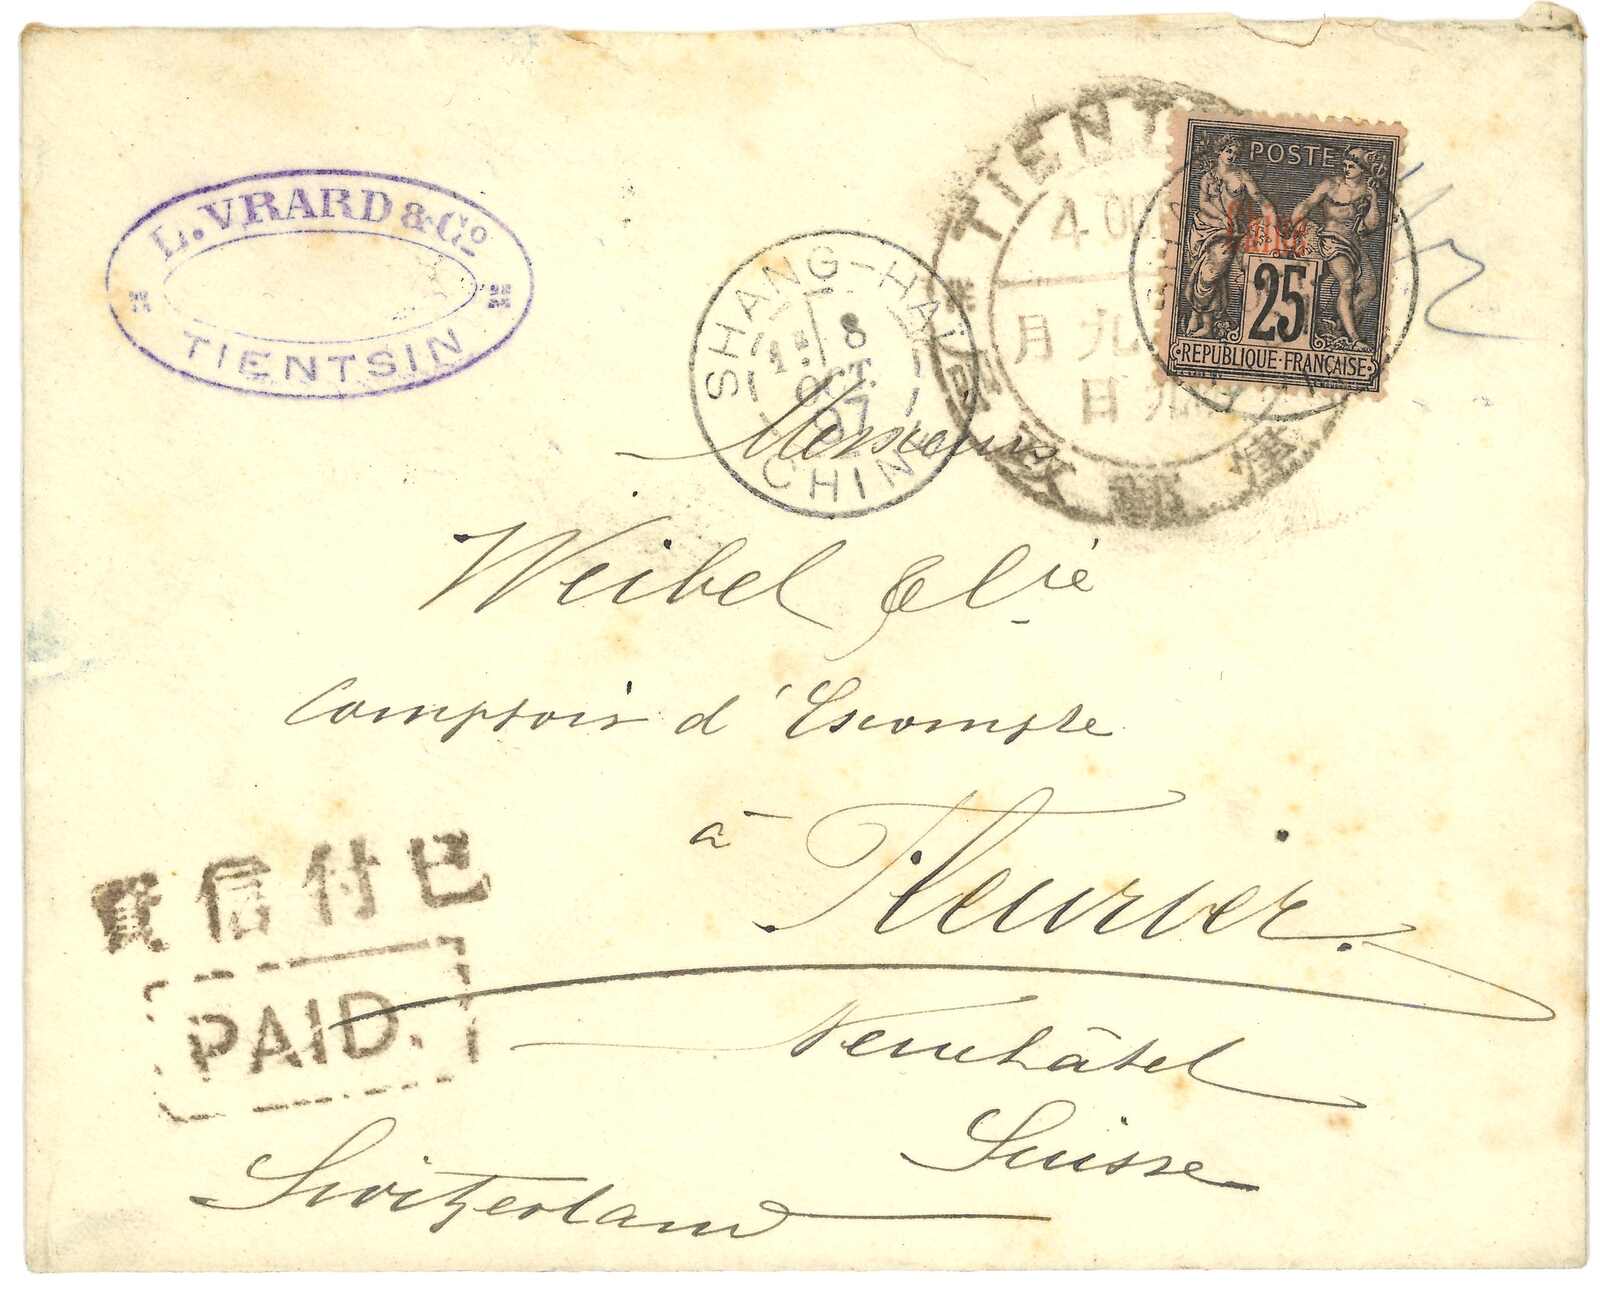 L. VRARD & Cº
TIENTSIN
SHANG-HAI
1ᵉ 8
OCT.
97
CHINE
TIENT
4 OCT
月九
日九
津
郵
POSTE
Chine
25
REPUBLIQUE FRANÇAISE
Messieurs
Weibel & Cie
Comptoir d'Escompte
à Fleurier.
Neuchâtel
Suisse
Switzerland
資信付已
PAID.